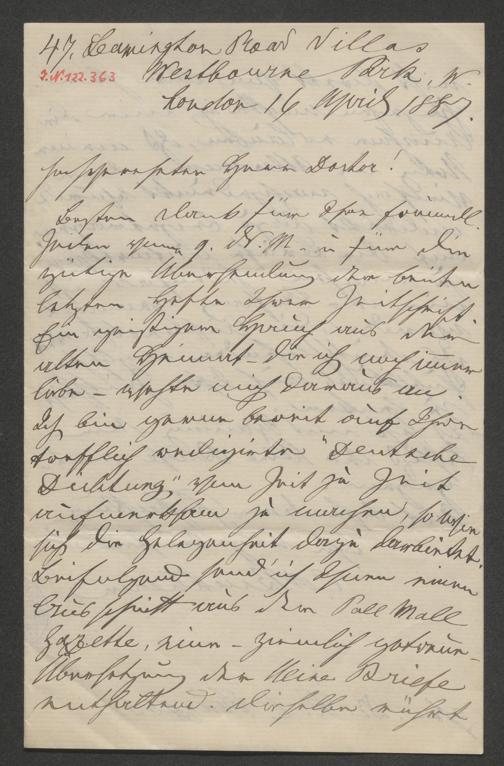 47, Leamington Road Villas
I.N. 122.363
Westbourne Park, W.
London 16 April 1887.
Hochverehrter Herr Doctor!
Besten Dank für Ihre freundl.
Zeilen vom 9. d. M. u für die
gütige Übersendung der beiden
letzten Hefte Ihrer Zeitschrift.
Ein geistiger Hauch aus der
alten Heimat – die ich noch immer
liebe – wehte mich daraus an.
Ich bin gerne bereit auf Ihre
trefflich redigirte "Deutsche
Dichtung" von Zeit zu Zeit
aufmerksam zu machen, so wie
sich die Gelegenheit dazu darbietet.
Beifolgend send' ich Ihnen einen
Ausschnitt aus der Pall Mall
Gazette, eine – ziemlich getreue –
Übersetzung der Heine Briefe
enthaltend. Dieselbe rührt